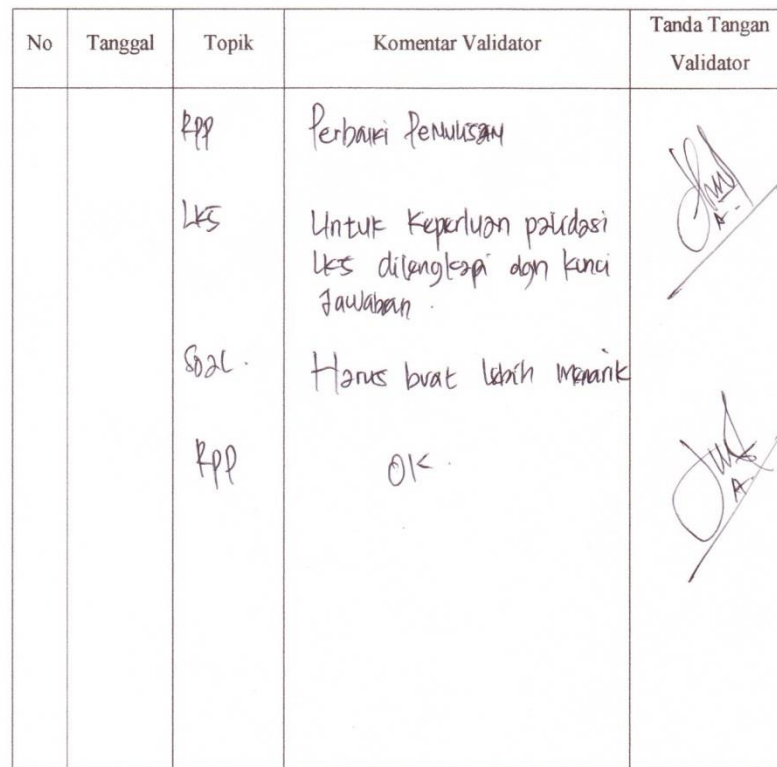 No Tanggal Topik Komentar Validator Tanda Tangan Validator
RPP Perbaiki Penulisan
LKS Untuk Keperluan palidasi
LKS dilengkapi dgn kunci
Jawaban.
Soal. Harus buat lebih menarik
RPP OK.